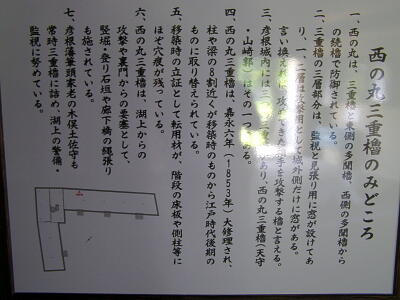 西の丸三重櫓のみどころ
一、西の丸は、三重櫓と東側の多聞櫓、西側の多聞櫓から
の続櫓で防御されている。
二、三重櫓の三層部分は、監視と見張り用に窓が設けてあ
り、一、二層は攻撃用として城外側だけに窓がある。
言い換えれば、攻めてきた寄手を攻撃する櫓と言える。
三、彦根城内には三つの三重櫓があり、西の丸三重櫓(天守
・山崎郭)はその一つである。
四、西の丸三重櫓は、嘉永六年(1853年)大修理され、
柱や梁の8割近くが移築時のものから江戸時代後期の
ものに取り替えられている。
五、移築時の立証として転用材が、階段の床板や側柱等に
ほぞ穴痕が残っている。
六、西の丸三重櫓は、湖上からの
攻撃や裏門からの要塞として、
竪堀・登り石垣や廊下橋の縄張り
も施されている。
七、彦根藩筆頭家老の木俣土佐守も
常時三重櫓に詰め、湖上の警備・
監視に努めている。